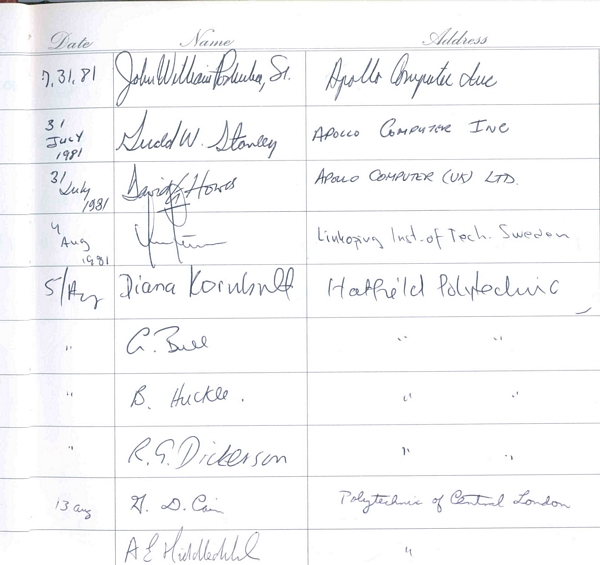 Date Name Address
7, 31, 81 John William Poduska, Sr. Apollo Computer Inc
31 July 1981 Judd W. Stanley APOLLO COMPUTER INC
31 July 1981 David G Howes APOLLO COMPUTER (UK) LTD.
4 Aug 1981 Linkoping Inst. of Tech. Sweden
5/Aug Diana Hatfield Polytechnic
" G. Bull " "
" B. Huckle. " "
" R.G. Dickerson " "
13 aug G. D. Cain Polytechnic of Central London
A E "